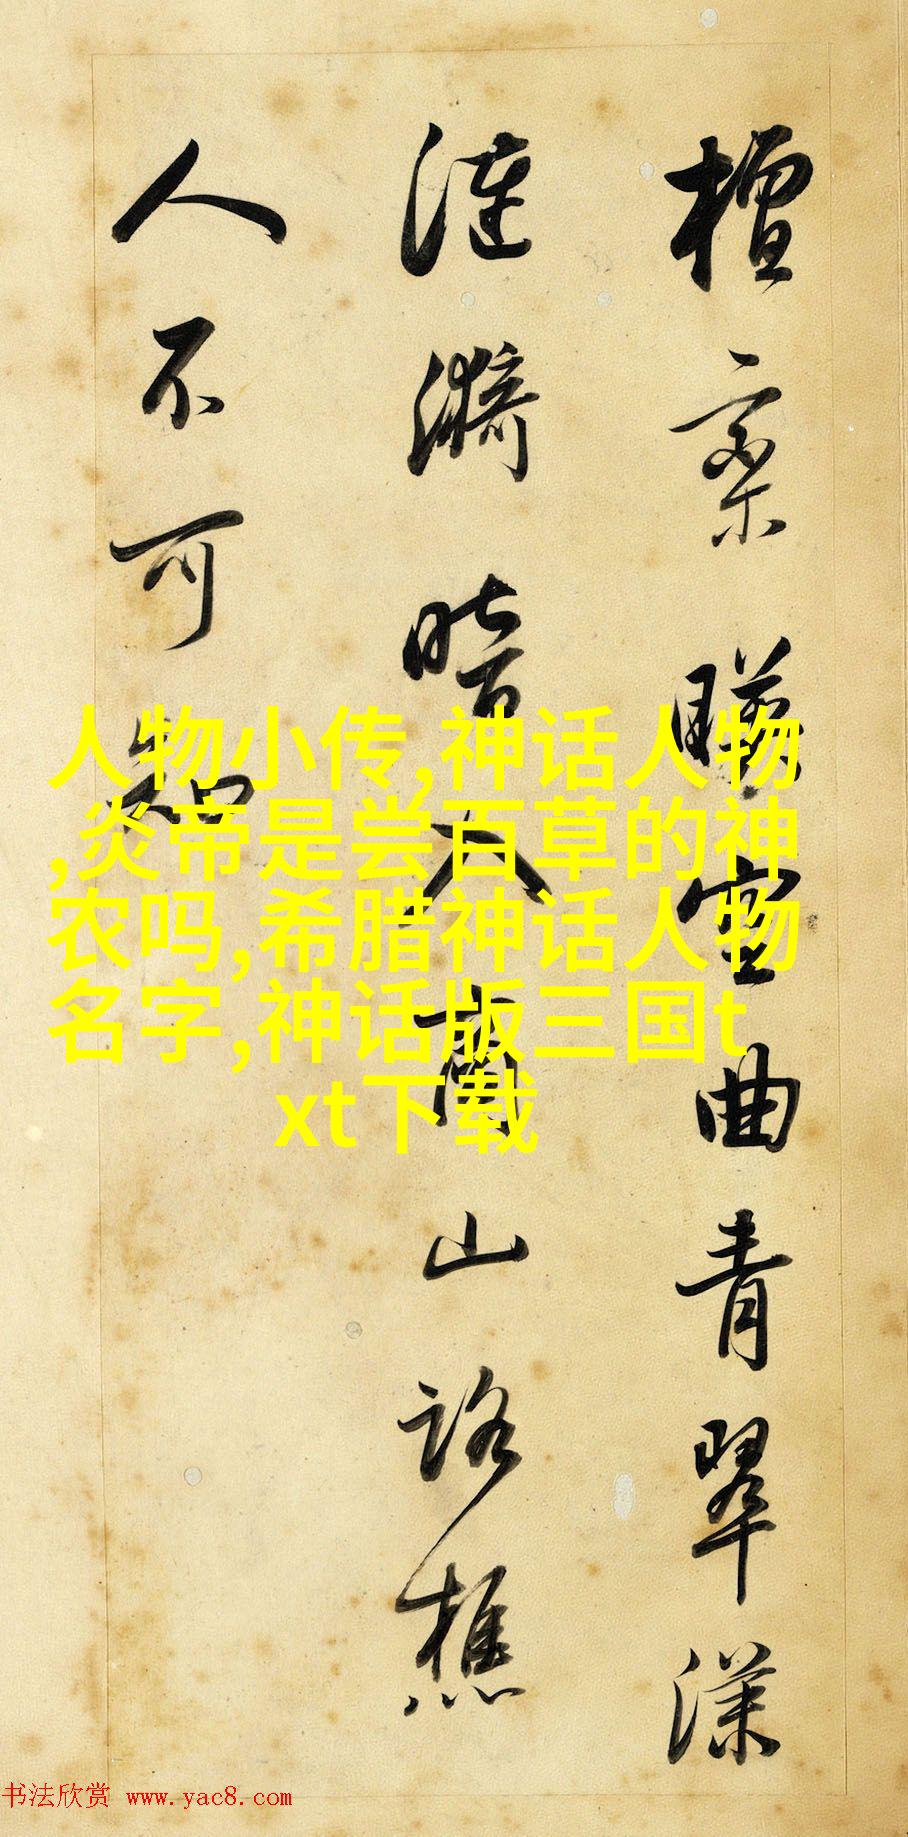 檀栾暎空曲青翠漾
漣漪暗入商山路樵
人不可知
人物小传,神话人物
,炎帝是尝百草的神
农吗,希腊神话人物
名字,神话版三国t
xt下载
书法欣赏 www.yac8.com